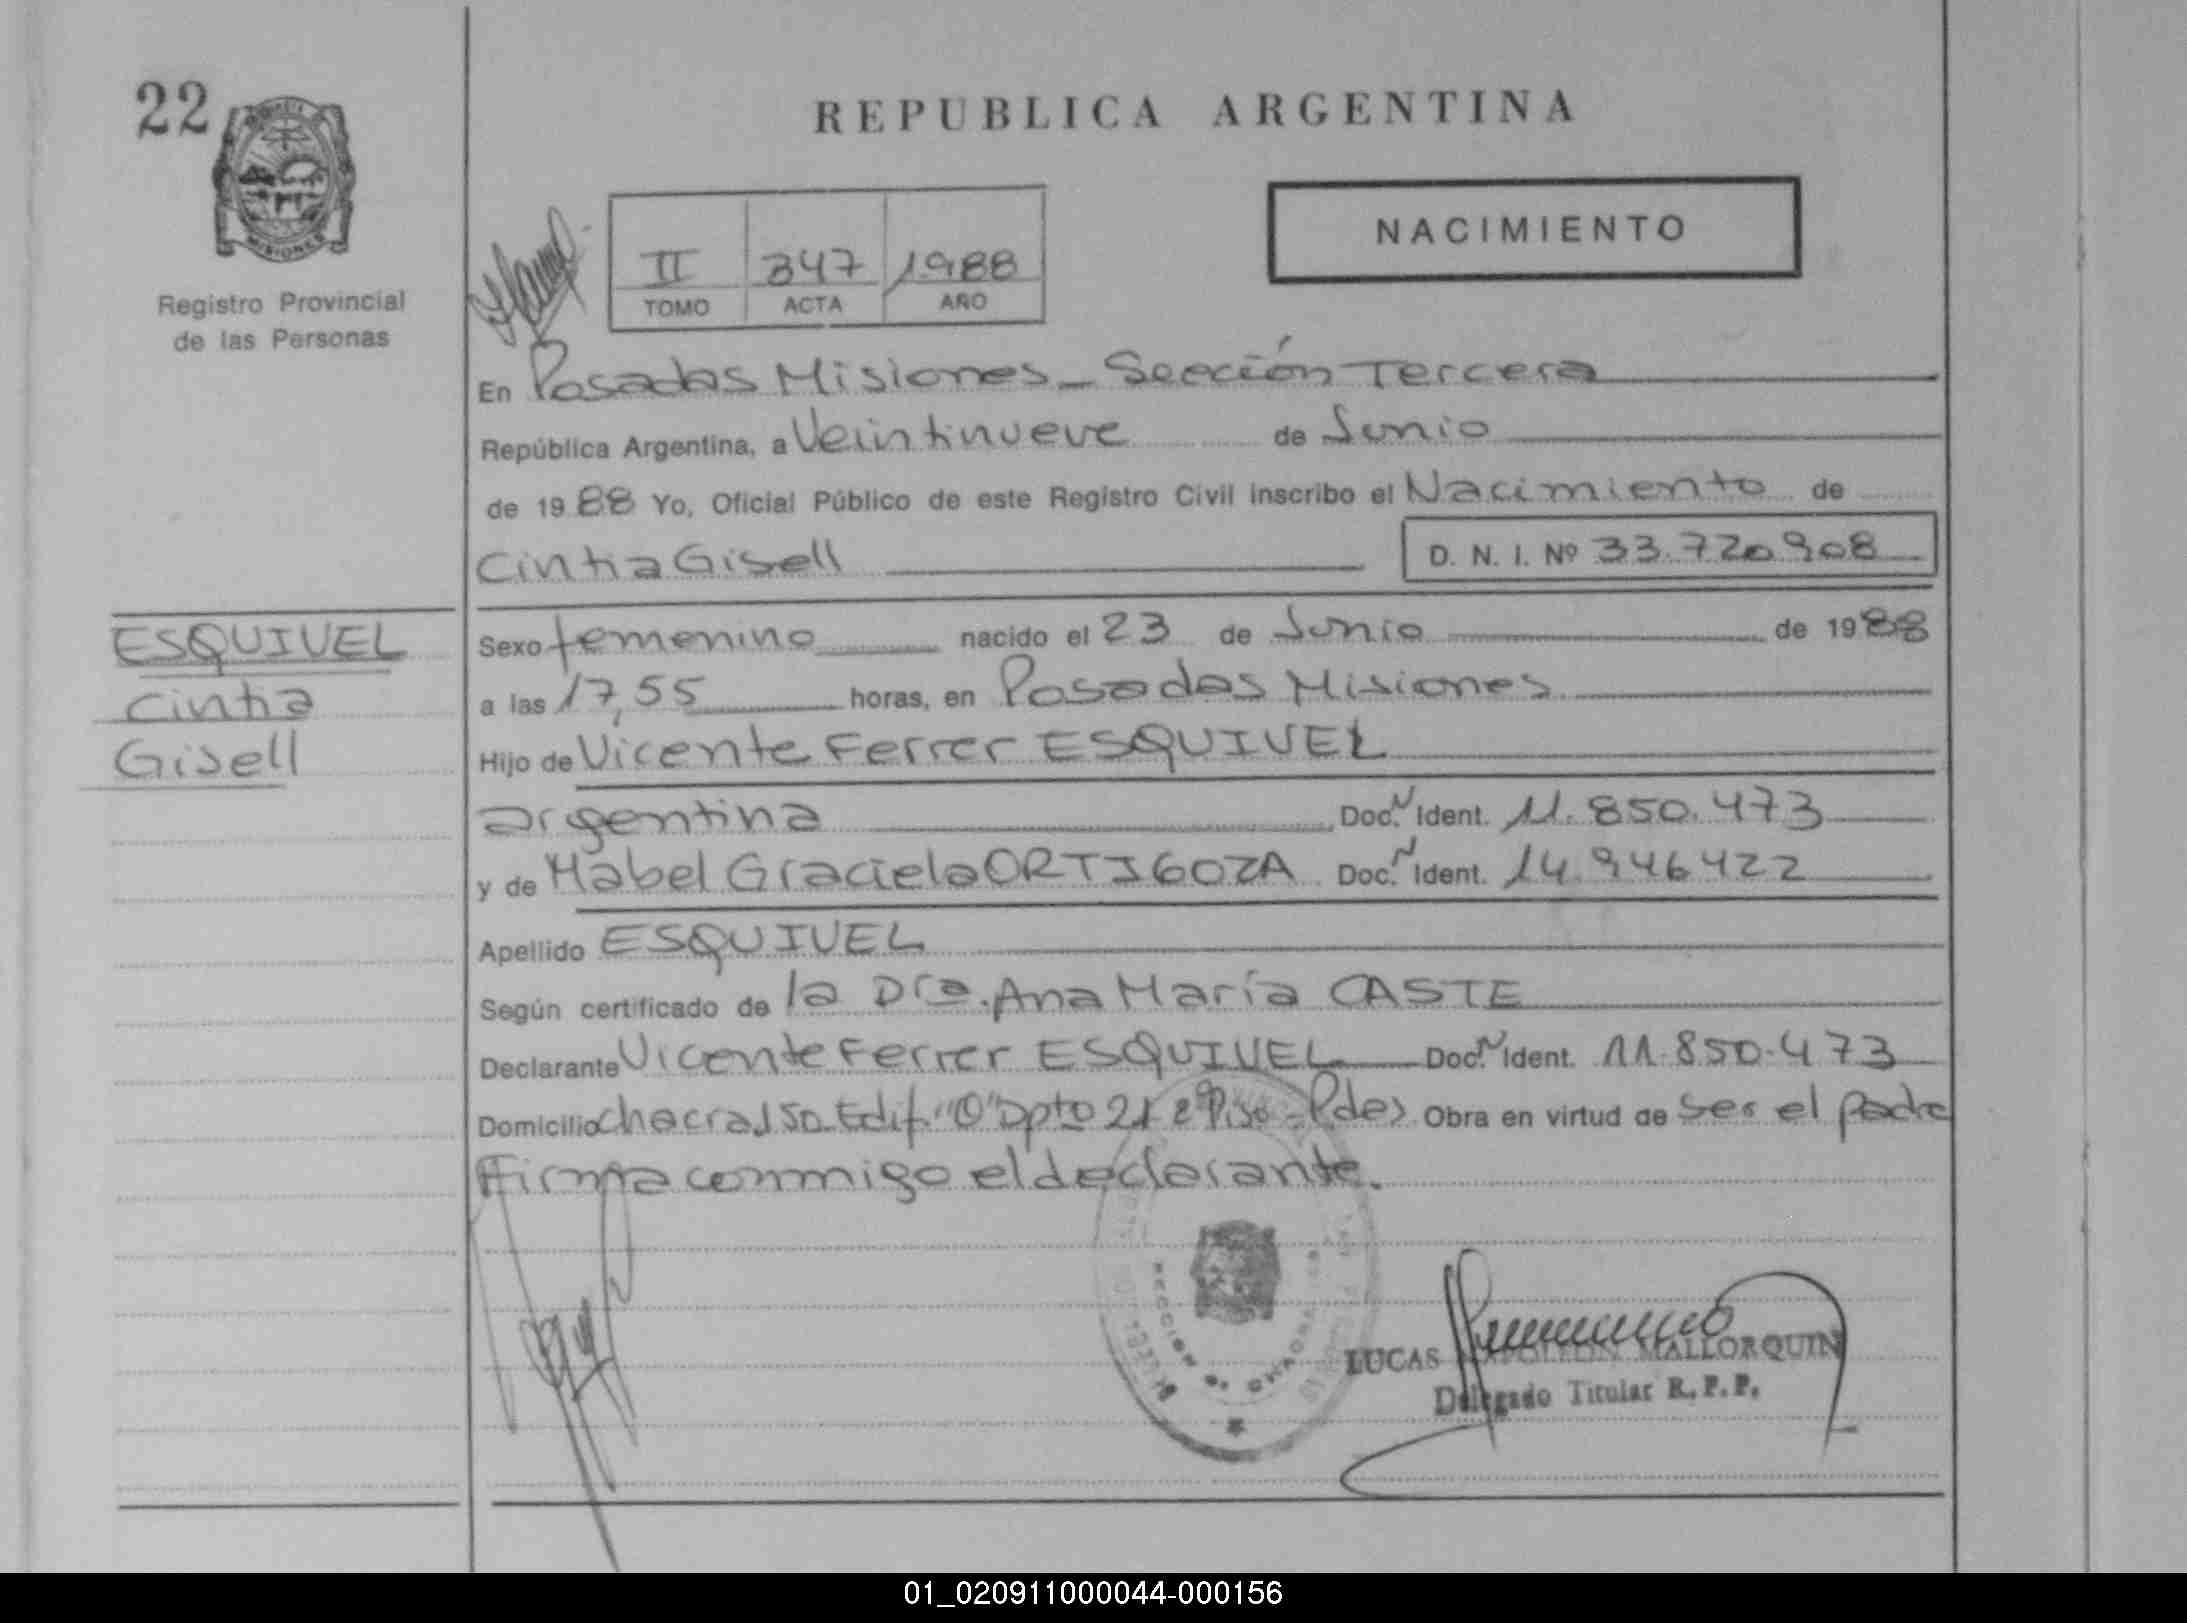 22
REPUBLICA ARGENTINA
MISIONES
Registro Provincial
de las Personas
II 347 1988
TOMO ACTA AÑO
NACIMIENTO
En Posadas Misiones - Sección Tercera
República Argentina, a Veintinueve de Junio
de 1988 Yo, Oficial Público de este Registro Civil inscribo el Nacimiento de
Cintia Gisell D. N. I. Nº 33.720.908
ESQUIVEL
Cintia
Gisell
Sexo femenino nacido el 23 de Junio de 1988
a las 17,55 horas, en Posadas Misiones
Hijo de Vicente Ferrer ESQUIVEL
argentina Doc. N Ident. 11.850.473
y de Mabel Graciela ORTIGOZA Doc. N Ident. 14.946422
Apellido ESQUIVEL
Según certificado de la Dra. Ana María CASTE
Declarante Vicente Ferrer ESQUIVEL Doc. N Ident. 11.850.473
Domicilio chacra 150 Edif. "O" Dpto 21 2º Piso - Pdas Obra en virtud de ser el padre
Firma conmigo el declarante.
LUCAS NAPOLEON MALLORQUIN
Delegado Titular R.P.P.
01_020911000044-000156